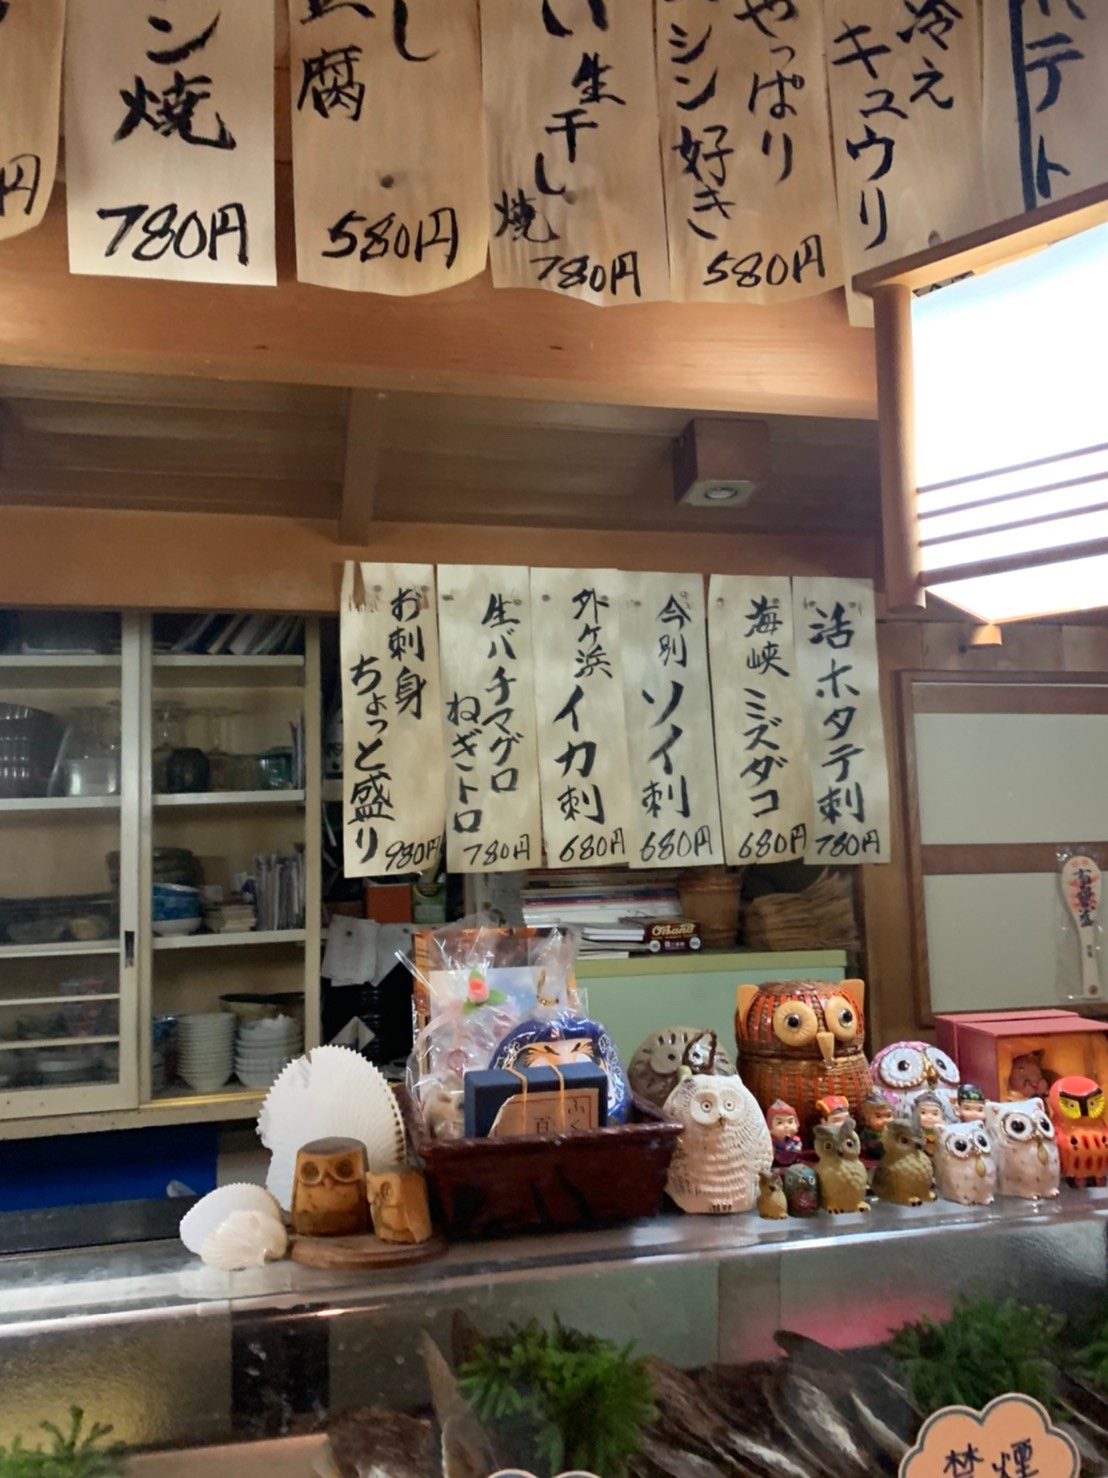 ン焼
780円
し
豆腐
580円
い
生干し
焼
780円
やっぱり
シン好き
580円
冷え
キュウリ
ポテト
円
活ホタテ刺
780円
海峡
ミズダコ
680円
今別
ソイ刺
680円
外ヶ浜
イカ刺
680円
生バチマグロ
ねぎトロ
780円
お刺身
ちょっと盛り
980円
禁煙